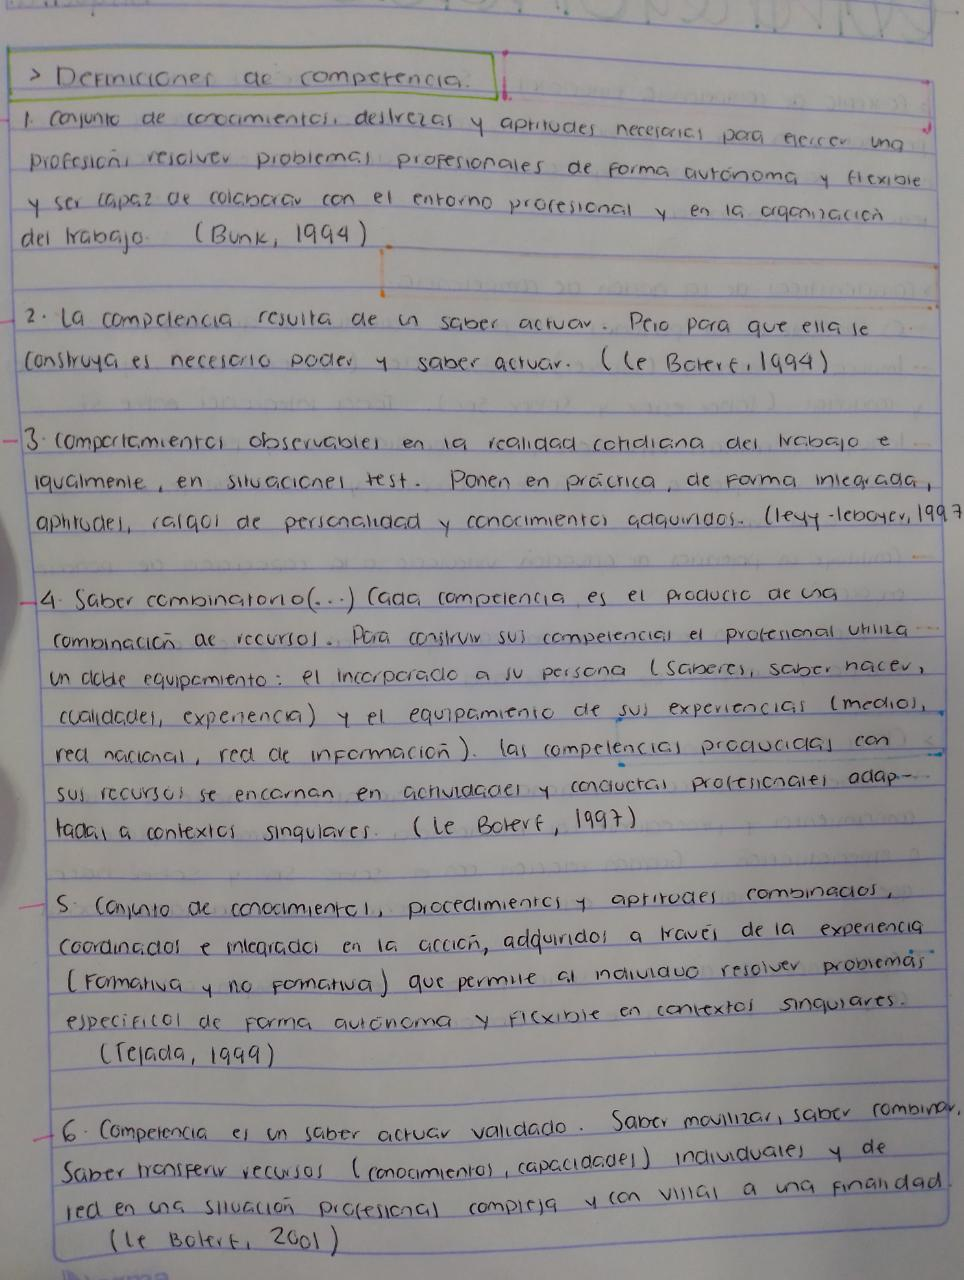 > Definiciones de competencia.
1. Conjunto de conocimientos, destrezas y aptitudes necesarias para ejercer una
profesión, resolver problemas profesionales de forma autónoma y flexible
y ser capaz de colaborar con el entorno profesional y en la organización
del trabajo. (Bunk, 1994)
2. La competencia resulta de un saber actuar. Pero para que ella se
construya es necesario poder y saber actuar. (Le Boterf, 1994)
3. Comportamientos observables en la realidad cotidiana del trabajo e
igualmente, en situaciones test. Ponen en práctica, de forma integrada,
aptitudes, rasgos de personalidad y conocimientos adquiridos. (levy-leboyer, 1997
4. Saber combinatorio (...) Cada competencia es el producto de una
combinación de recursos. Para construir sus competencias el profesional utiliza
un doble equipamiento: el incorporado a su persona (saberes, saber hacer,
cualidades, experiencia) y el equipamiento de sus experiencias (medios,
red nacional, red de información). las competencias producidas con
sus recursos se encarnan en actividades y conductas profesionales adap-
tadas a contextos singulares. (Le Boterf, 1997)
5. Conjunto de conocimientos, procedimientos y aptitudes combinados,
coordinados e integrados en la acción, adquiridos a través de la experiencia
(Formativa y no formativa) que permite al individuo resolver problemas
especificos de forma autónoma y flexible en contextos singulares.
(Tejada, 1999)
6. Competencia es un saber actuar validado. Saber movilizar, saber combinar,
Saber transferir recursos (conocimientos, capacidades) individuales y de
red en una situación profesional compleja y con vistas a una finalidad.
(Le Boterf, 2001)